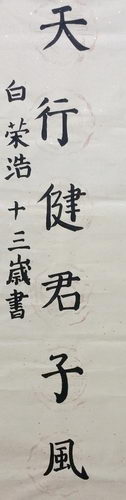 天行健君子風
白荣浩十三歲書